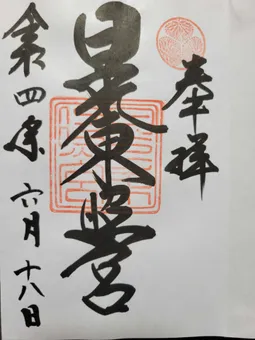 奉拝
日光東照宮
令和四年 六月 十八日